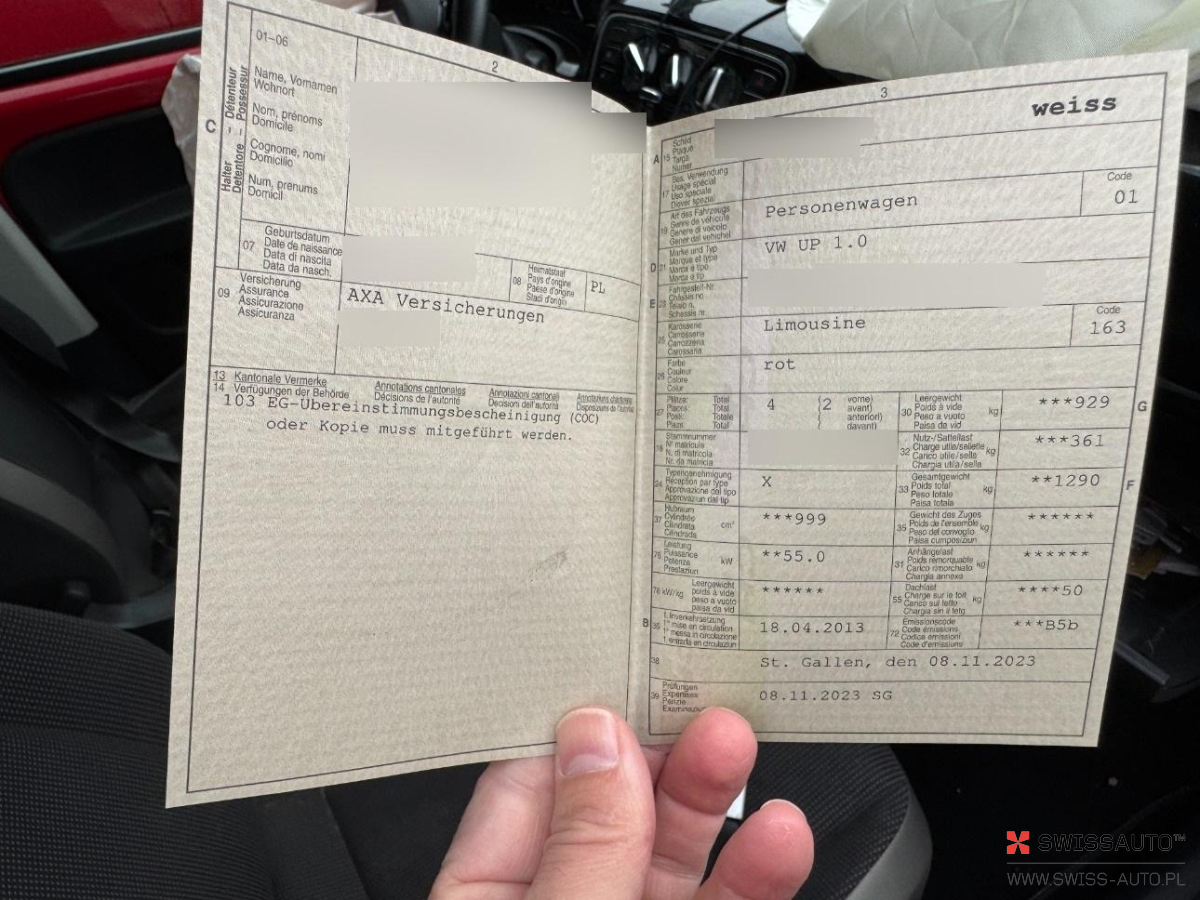 2
01-06
C
Halter
Détenteur
Detentore
Possessur
Name, Vornamen
Wohnort
Nom, prénoms
Domicile
Cognome, nomi
Domicilio
Num, prenums
Domicil
07
Geburtsdatum
Date de naissance
Data di nascita
Data da nasch.
08
Heimatstaat
Pays d'origine
Paese d'origine
Stadi d'origin
PL
09
Versicherung
Assurance
Assicurazione
Assicuranza
AXA Versicherungen
13 Kantonale Vermerke
14 Verfügungen der Behörde
Annotations cantonales
Décisions de l'autorité
Annotazioni cantonali
Decisioni dell'autorità
103 EG-Übereinstimmungsbescheinigung (COC)
oder Kopie muss mitgeführt werden.
3
weiss
A 15
Schild
Plaque
Targa
Numer
17
Bes. Verwendung
Usage spécial
Uso speciale
Diever spezial
19
Art des Fahrzeugs
Genre de véhicule
Genere di veicolo
Gener dal vehichel
Personenwagen
Code
01
D 21
Marke und Typ
Marque et type
Marca e tipo
Marca e tip
VW UP 1.0
E 23
Fahrgestell-Nr.
Châssis no
Telaio n.
Schassis nr.
25
Karosserie
Carrosserie
Carrozzeria
Carossaria
Limousine
Code
163
26
Farbe
Couleur
Colore
Colur
rot
27
Plätze: Total
Places: Total
Posti: Totale
Plazs: Total
4 (2
vorne)
avant)
anteriori)
davant)
30
Leergewicht
Poids à vide
Peso a vuoto
Paisa da vid
kg
***929
G
18
Stammnummer
N° matricule
N. di matricola
Nr. da matricla
32
Nutz-/Sattellast
Charge utile/sellette
Carico utile/sella
Chargia utila/sella
kg
***361
24
Typengenehmigung
Réception par type
Approvazione del tipo
Approvaziun dal tip
X
33
Gesamtgewicht
Poids total
Peso totale
Paisa totala
kg
**1290
F
37
Hubraum
Cylindrée
Cilindrata
Cilindrada
cm³
***999
35
Gewicht des Zuges
Poids de l'ensemble
Peso del convoglio
Paisa cumposiziun
kg
******
76
Leistung
Puissance
Potenza
Prestaziun
kW
**55.0
31
Anhängelast
Poids remorquable
Carico rimorchiato
Chargia annexa
kg
******
78 kW/kg
Leergewicht
poids à vide
peso a vuoto
paisa da vid
******
55
Dachlast
Charge sur le toit
Carico sul tetto
Chargia sin il tetg
kg
****50
B 36
1. Inverkehrsetzung
1re mise en circulation
1a messa in circolazione
1. entrada en circulaziun
18.04.2013
72
Emissionscode
Code émissions
Codice emissioni
Code d'emissiuns
***B5b
38
St. Gallen, den 08.11.2023
39
Prüfungen
Expertises
Perizie
08.11.2023 SG
SWISSAUTO™
WWW.SWISS-AUTO.PL